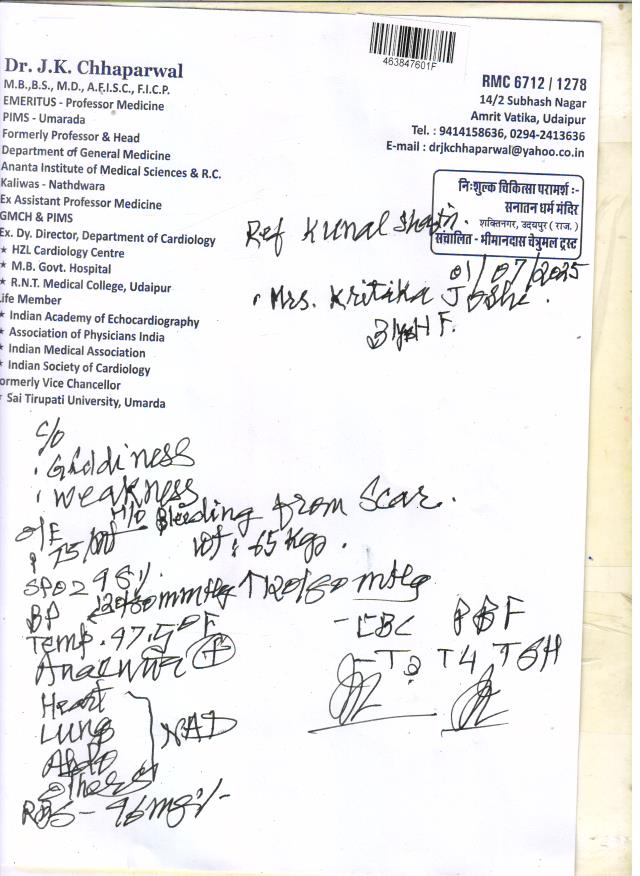 463847601F
Dr. J.K. Chhaparwal
M.B.,B.S., M.D., A.F.I.S.C., F.I.C.P.
EMERITUS - Professor Medicine
PIMS - Umarada
Formerly Professor & Head
Department of General Medicine
Ananta Institute of Medical Sciences & R.C.
Kaliwas - Nathdwara
Ex Assistant Professor Medicine
GMCH & PIMS
Ex. Dy. Director, Department of Cardiology
★ HZL Cardiology Centre
★ M.B. Govt. Hospital
★ R.N.T. Medical College, Udaipur
ife Member
★ Indian Academy of Echocardiography
★ Association of Physicians India
★ Indian Medical Association
★ Indian Society of Cardiology
ormerly Vice Chancellor
★ Sai Tirupati University, Umarda
RMC 6712 / 1278
14/2 Subhash Nagar
Amrit Vatika, Udaipur
Tel. : 9414158636, 0294-2413636
E-mail : drjkchhaparwal@yahoo.co.in
निःशुल्क चिकित्सा परामर्श :-
सनातन धर्म मंदिर
शक्तिनगर, उदयपुर ( राज. )
संचालित - भीमानदास चैत्रुमल ट्रस्ट
Ref Kunal
01/07/2025
Mrs. Kritika Joshi
c/o
Giddiness
Weakness
H/O Bleeding from Scar.
O/E
P 75/m Wt : 65 Kgs.
SPO2 98%.
BP 120/80 mmHg ↑ 120/80 mmHg
Temp. 97.5°F
Anaemia +
Heart
Lung
Abdo
Others
NAD
RBS - 96 mg%
- CBC PBF
- T3 T4 TSH